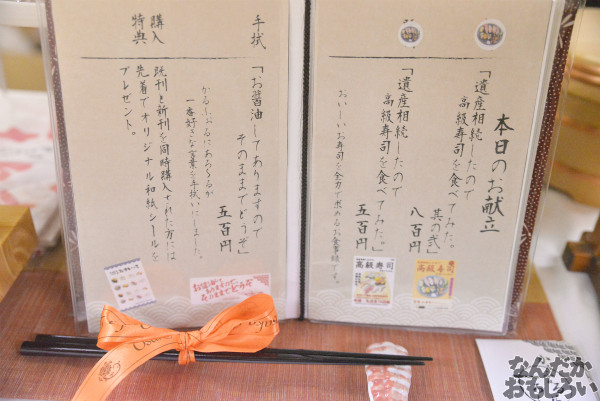 本日のお献立
「遺産相続したので
高級寿司を食べてみた。」
其の弐
八百円
「遺産相続したので
高級寿司を食べてみた。」
五百円
おいしいお寿司を全力で求めるお食事録です。
手拭
「お醤油してありますので
そのままでどうぞ」
五百円
一番好きな言葉を手拭いにしました。
購入
特典
既刊と新刊を同時購入された方には
先着でオリジナル和紙シールを
プレゼント。
高級寿司
高級寿司
なんだか
おもしろい